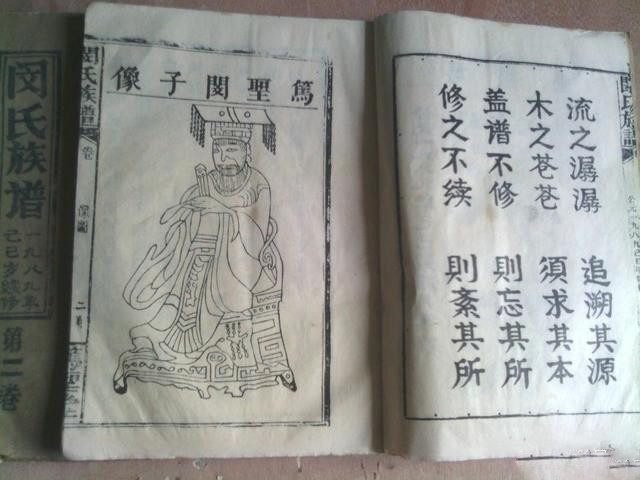 闵氏族谱
一九八九年
己巳岁续修
第二卷
閔氏族譜
卷
像圖
二
篤聖閔子像
流之潺潺 追溯其源
木之苍苍 須求其本
盖谱不修 則忘其所
修之不续 則紊其所
閔氏族譜
公元一九八九己巳